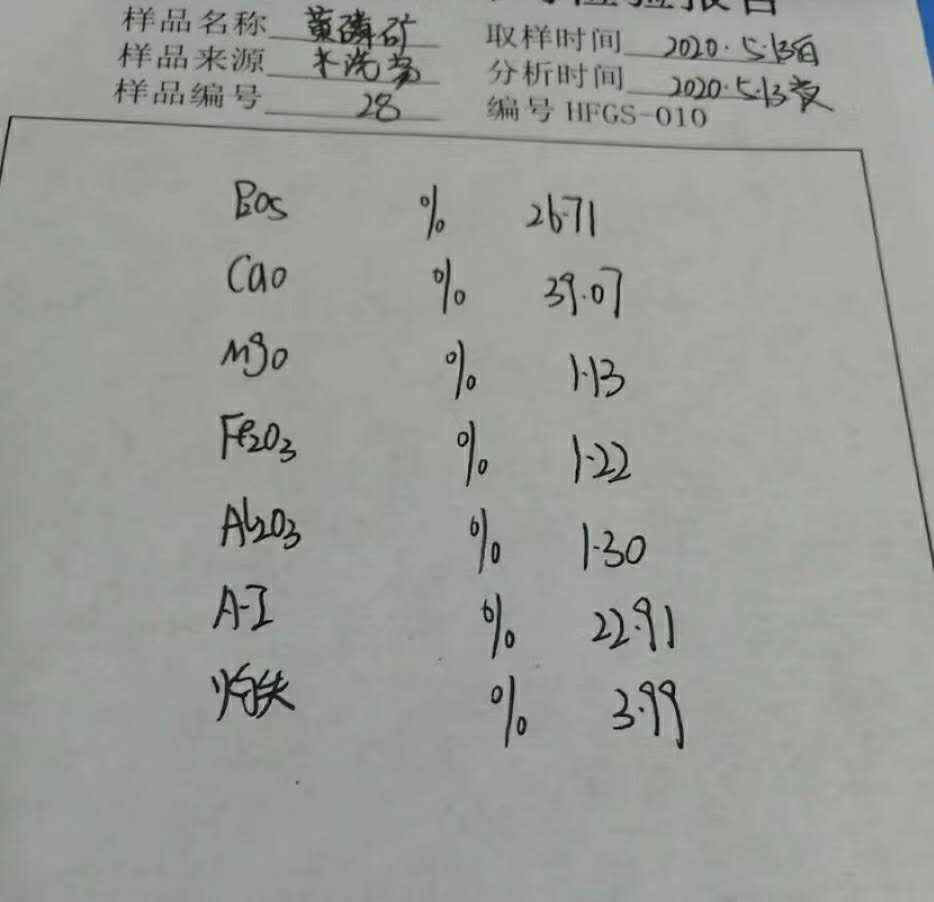 检验报告
样品名称 黄磷矿 取样时间 2020.5.13白
样品来源 分析时间 2020.5.13夜
样品编号 28 编号 HFGS-010
P2O5 % 26.71
CaO % 39.07
MgO % 1.13
Fe2O3 % 1.22
Al2O3 % 1.30
A-I % 22.91
灼失 % 3.99